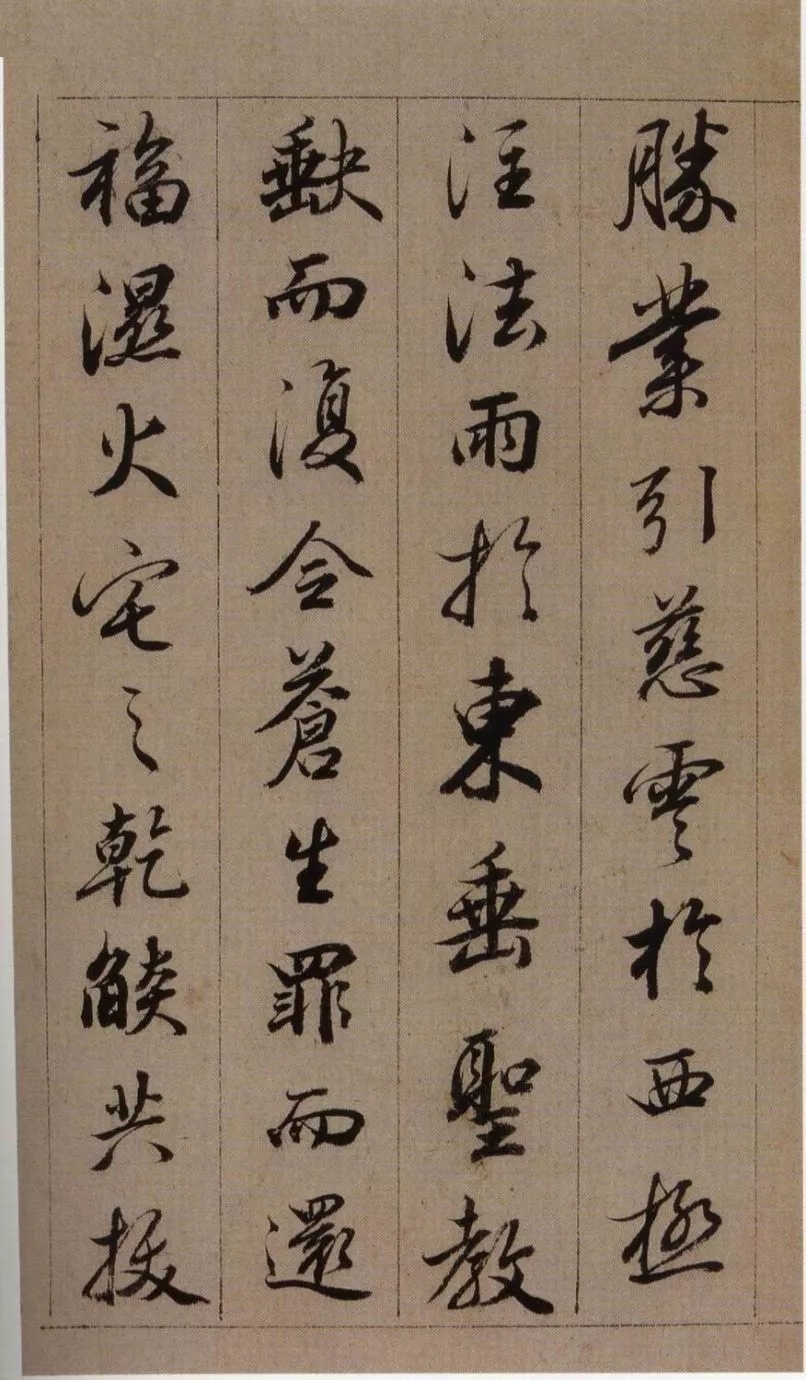 勝業引慈雲於西極
注法雨於東垂聖教
缺而復令蒼生罪而還
福濕火宅之乾燄共拔